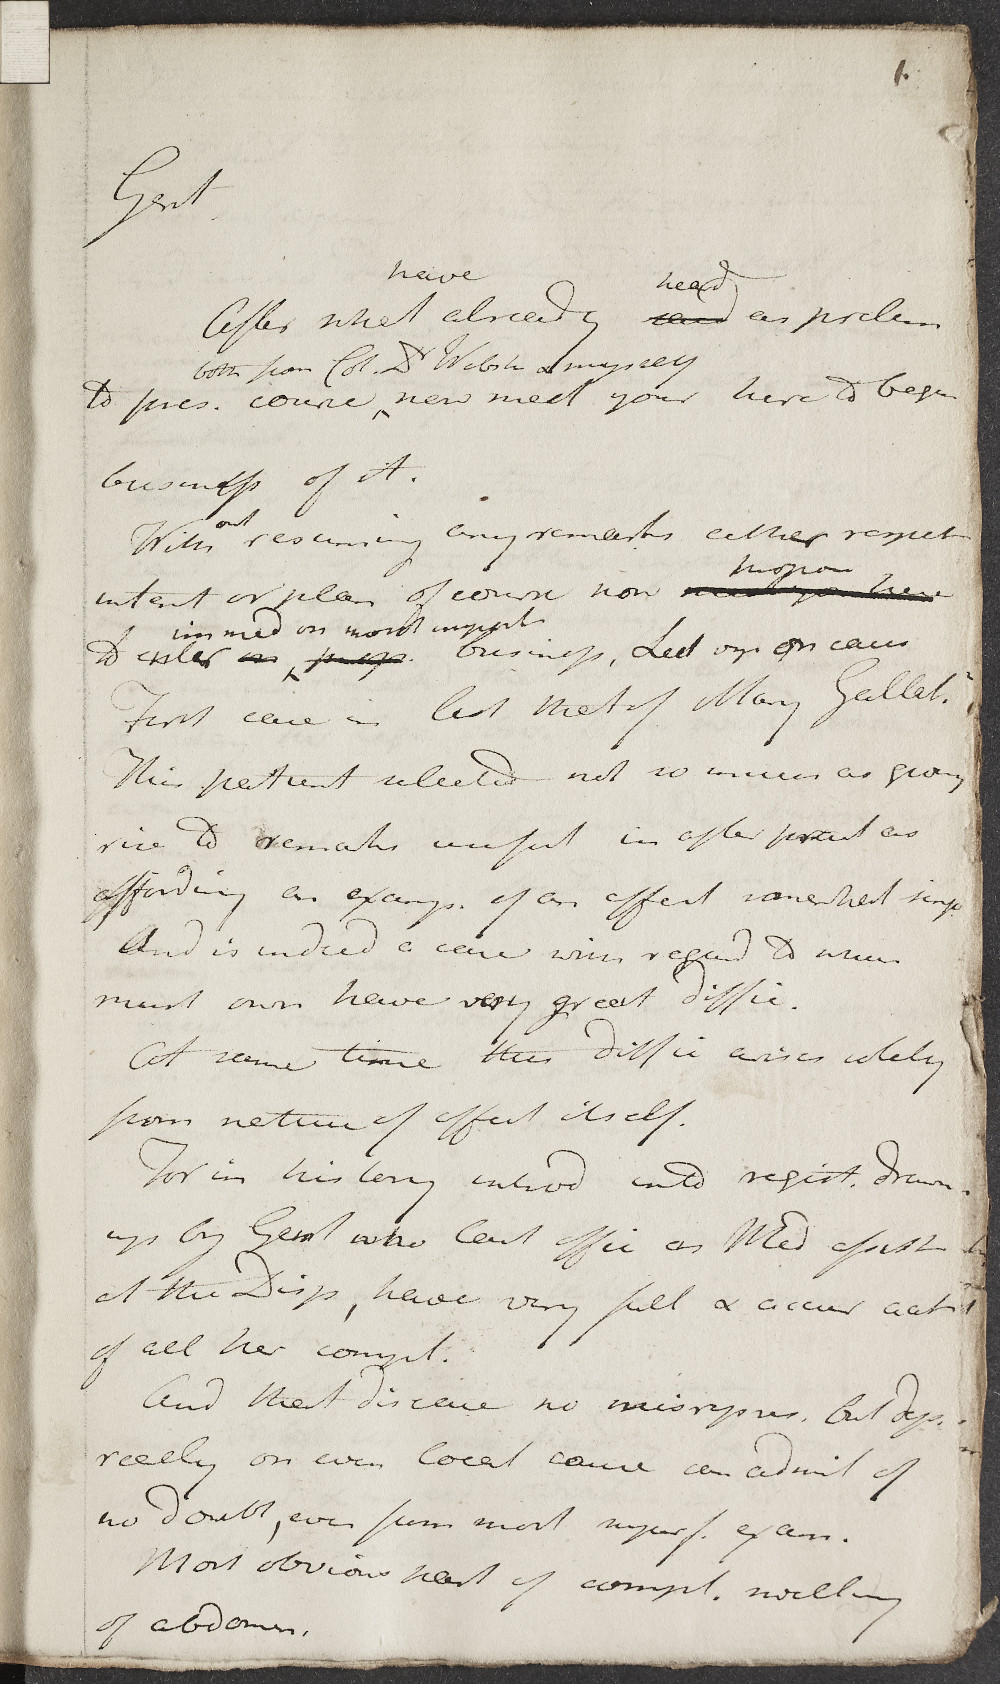 1.
Gent
have heard
After what already said as prelim
both from Col. Dr Webster & myself
to pres. course, now meet your here to begin
business of it.
Without resuming any remarks either respect
propose
intent or plan of course now meet you here
immed on most import
to enter on prop. business, Led up on cases
First case in list that of Mary Gallat.
This patient selected not so much as giving
rise to remarks useful in after pract as
affording an examp. of an affect somewhat sing
And is indeed a case with regard to which
must own have very great diffic.
At same time this diffic arises solely
from nature of affect itself.
For in history introd into regist. drawn
up by Gent who last offic as Med assist
at the Disp, have very full & accur acct
of all her compl.
And that disease no misrepres. but dep.
really on even local cause can admit of
no doubt, even from most superf. exam.
Most obvious part of compl. swelling
of abdomen.